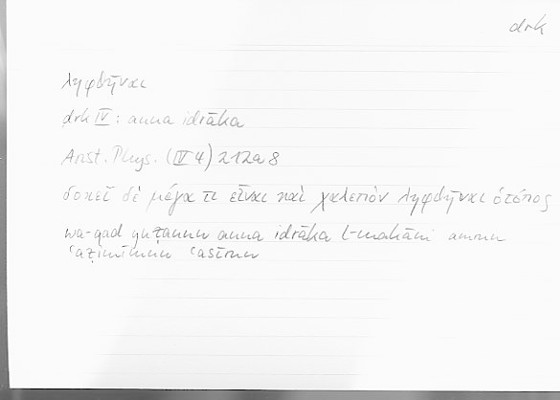 drk
ληφθῆναι
drk IV: anna idrāka
Arist. Phys. (IV 4) 212a8
δοκεῖ δὲ μέγα τι εἶναι καὶ χαλεπὸν ληφθῆναι ὁ τόπος
wa-qad yuẓannu anna idrāka l-makāni amrun
ʿaẓīmun ʿasīrun